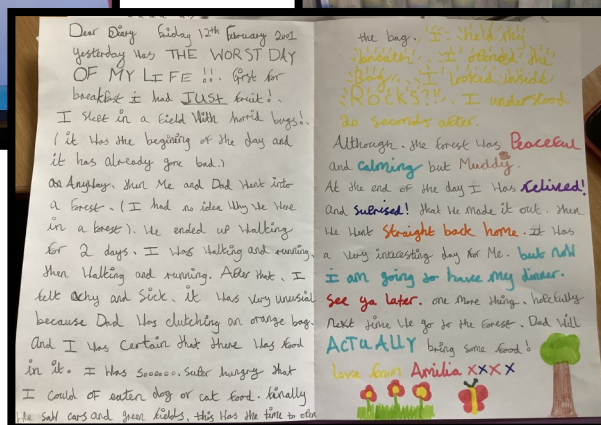 Dear Diary Friday 12th February 2001
yesterday was THE WORST DAY
OF MY LIFE !!. first for
breakfast i had JUST fruit!.
I slept in a field with horrid bugs!.
(it was the begining of the day and
it has already gone bad.)
Anyway, then Me and Dad went into
a forest. (I had no idea why we were
in a forest). We ended up walking
for 2 days. I was walking and running,
then walking and running. After that, I
felt achy and sick. it was very unusial
because Dad was clutching an orange bag.
and I was certain that there was food
in it. I was soooooo.. super hungry that
I could of eaten dog or cat food. finally
We saw cars and green fields, this was the time to open
the bag. I held my
breath. I opened the
Bag. I looked inside
ROCKS?!. I understood
20 seconds after.
Although, the forest was Peaceful
and calming but Muddy.
At the end of the day I was relived!
and suprised! that we made it out. then
We went straight back home. it was
a very interesting day for Me. but now
i am going to have my dinner.
see ya later. one more thing, hopefully
next time we go to the forest. Dad will
ACTUALLY bring some food!
love from Amilia xxxx